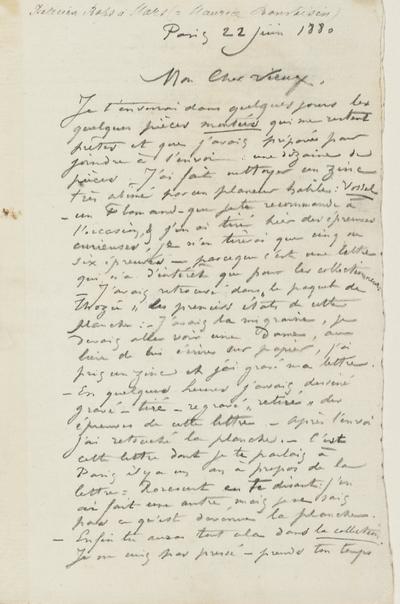 Félicien Rops à Mars (= Maurice Bonvoisin)
Paris 22 juin 1880
Mon Cher Vieux,
Je t'enverrai dans quelques jours les
quelques pièces montées qui me restent
prêtes et que j'avais préparées pour
joindre à l'envoi : une dizaine de
pièces. J'ai fait nettoyer un zinc
très abîmé par un planeur habile : Vossel
– un Flamand – que je te recommande à
l'occasion, & j'en ai tiré hier des épreuves
curieuses, je n'en tirerai que cinq ou
six épreuves – parceque c'est une lettre
qui n'a d'intérêt que pour les collectionneurs
– J'avais retrouvé dans le paquet de
Thozée les premiers états de cette
planche : – J'avais la migraine, je
devais aller voir une Dame, au
lieu de lui écrire sur papier, j'ai
pris un zinc et j'ai gravé ma lettre.
– En quelques heures j'avais dessiné
gravé – tiré – regravé "retiré" des
épreuves de cette lettre – après l'envoi
j'ai retouché la planche. – C'est
cette lettre dont je te parlais à
Paris il y a un an à propos de la
lettre = en te disant : j'en
ai fait une autre, mais je ne sais
pas ce qu'est devenue la planche.
– Enfin tu auras tout cela dans la collection
Je ne suis pas pressé – prends ton temps